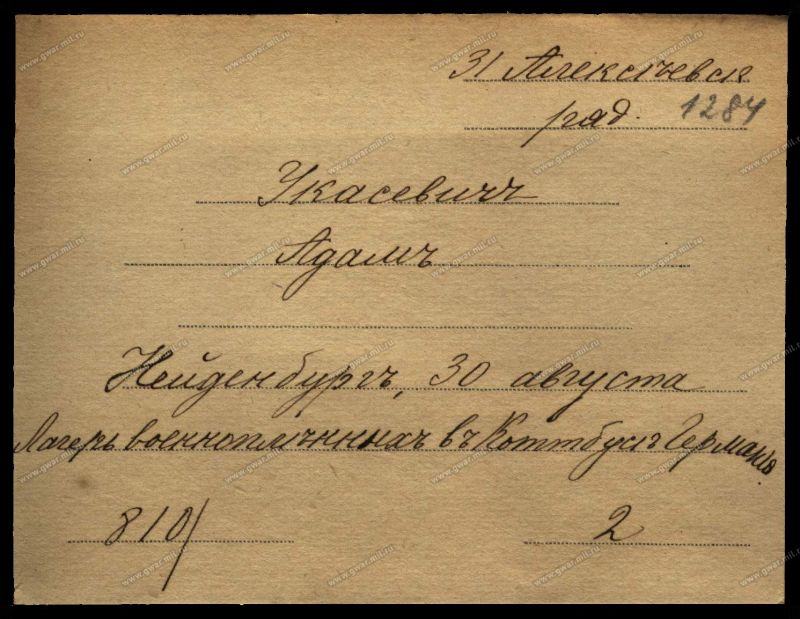 31 Алексѣевск
ряд. 1284
Укасевичъ
Адамъ
Нейденбургъ, 30 августа
Лагерь военноплѣнныхъ въ Коттбусѣ Германія
810/
2
www.gwar.mil.ru